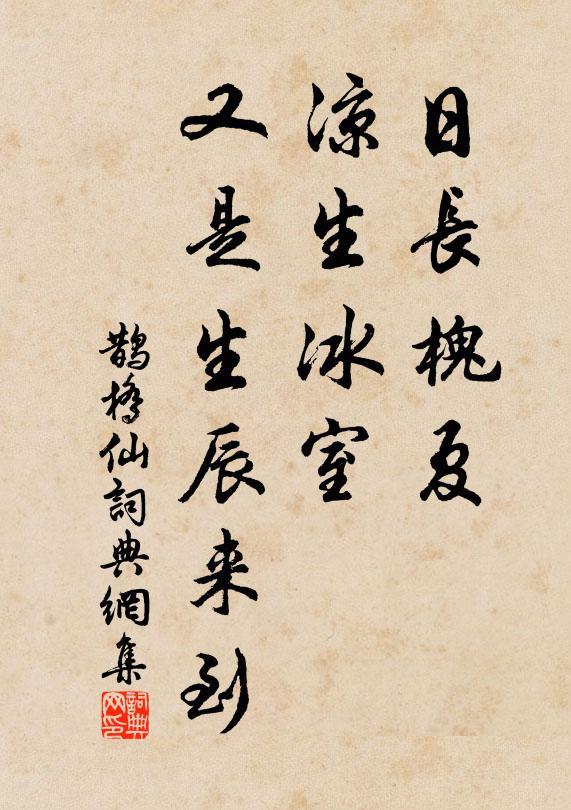 日長槐夏
凉生冰室
又是生辰来到
鵲橋仙詞典網集
詞典网印